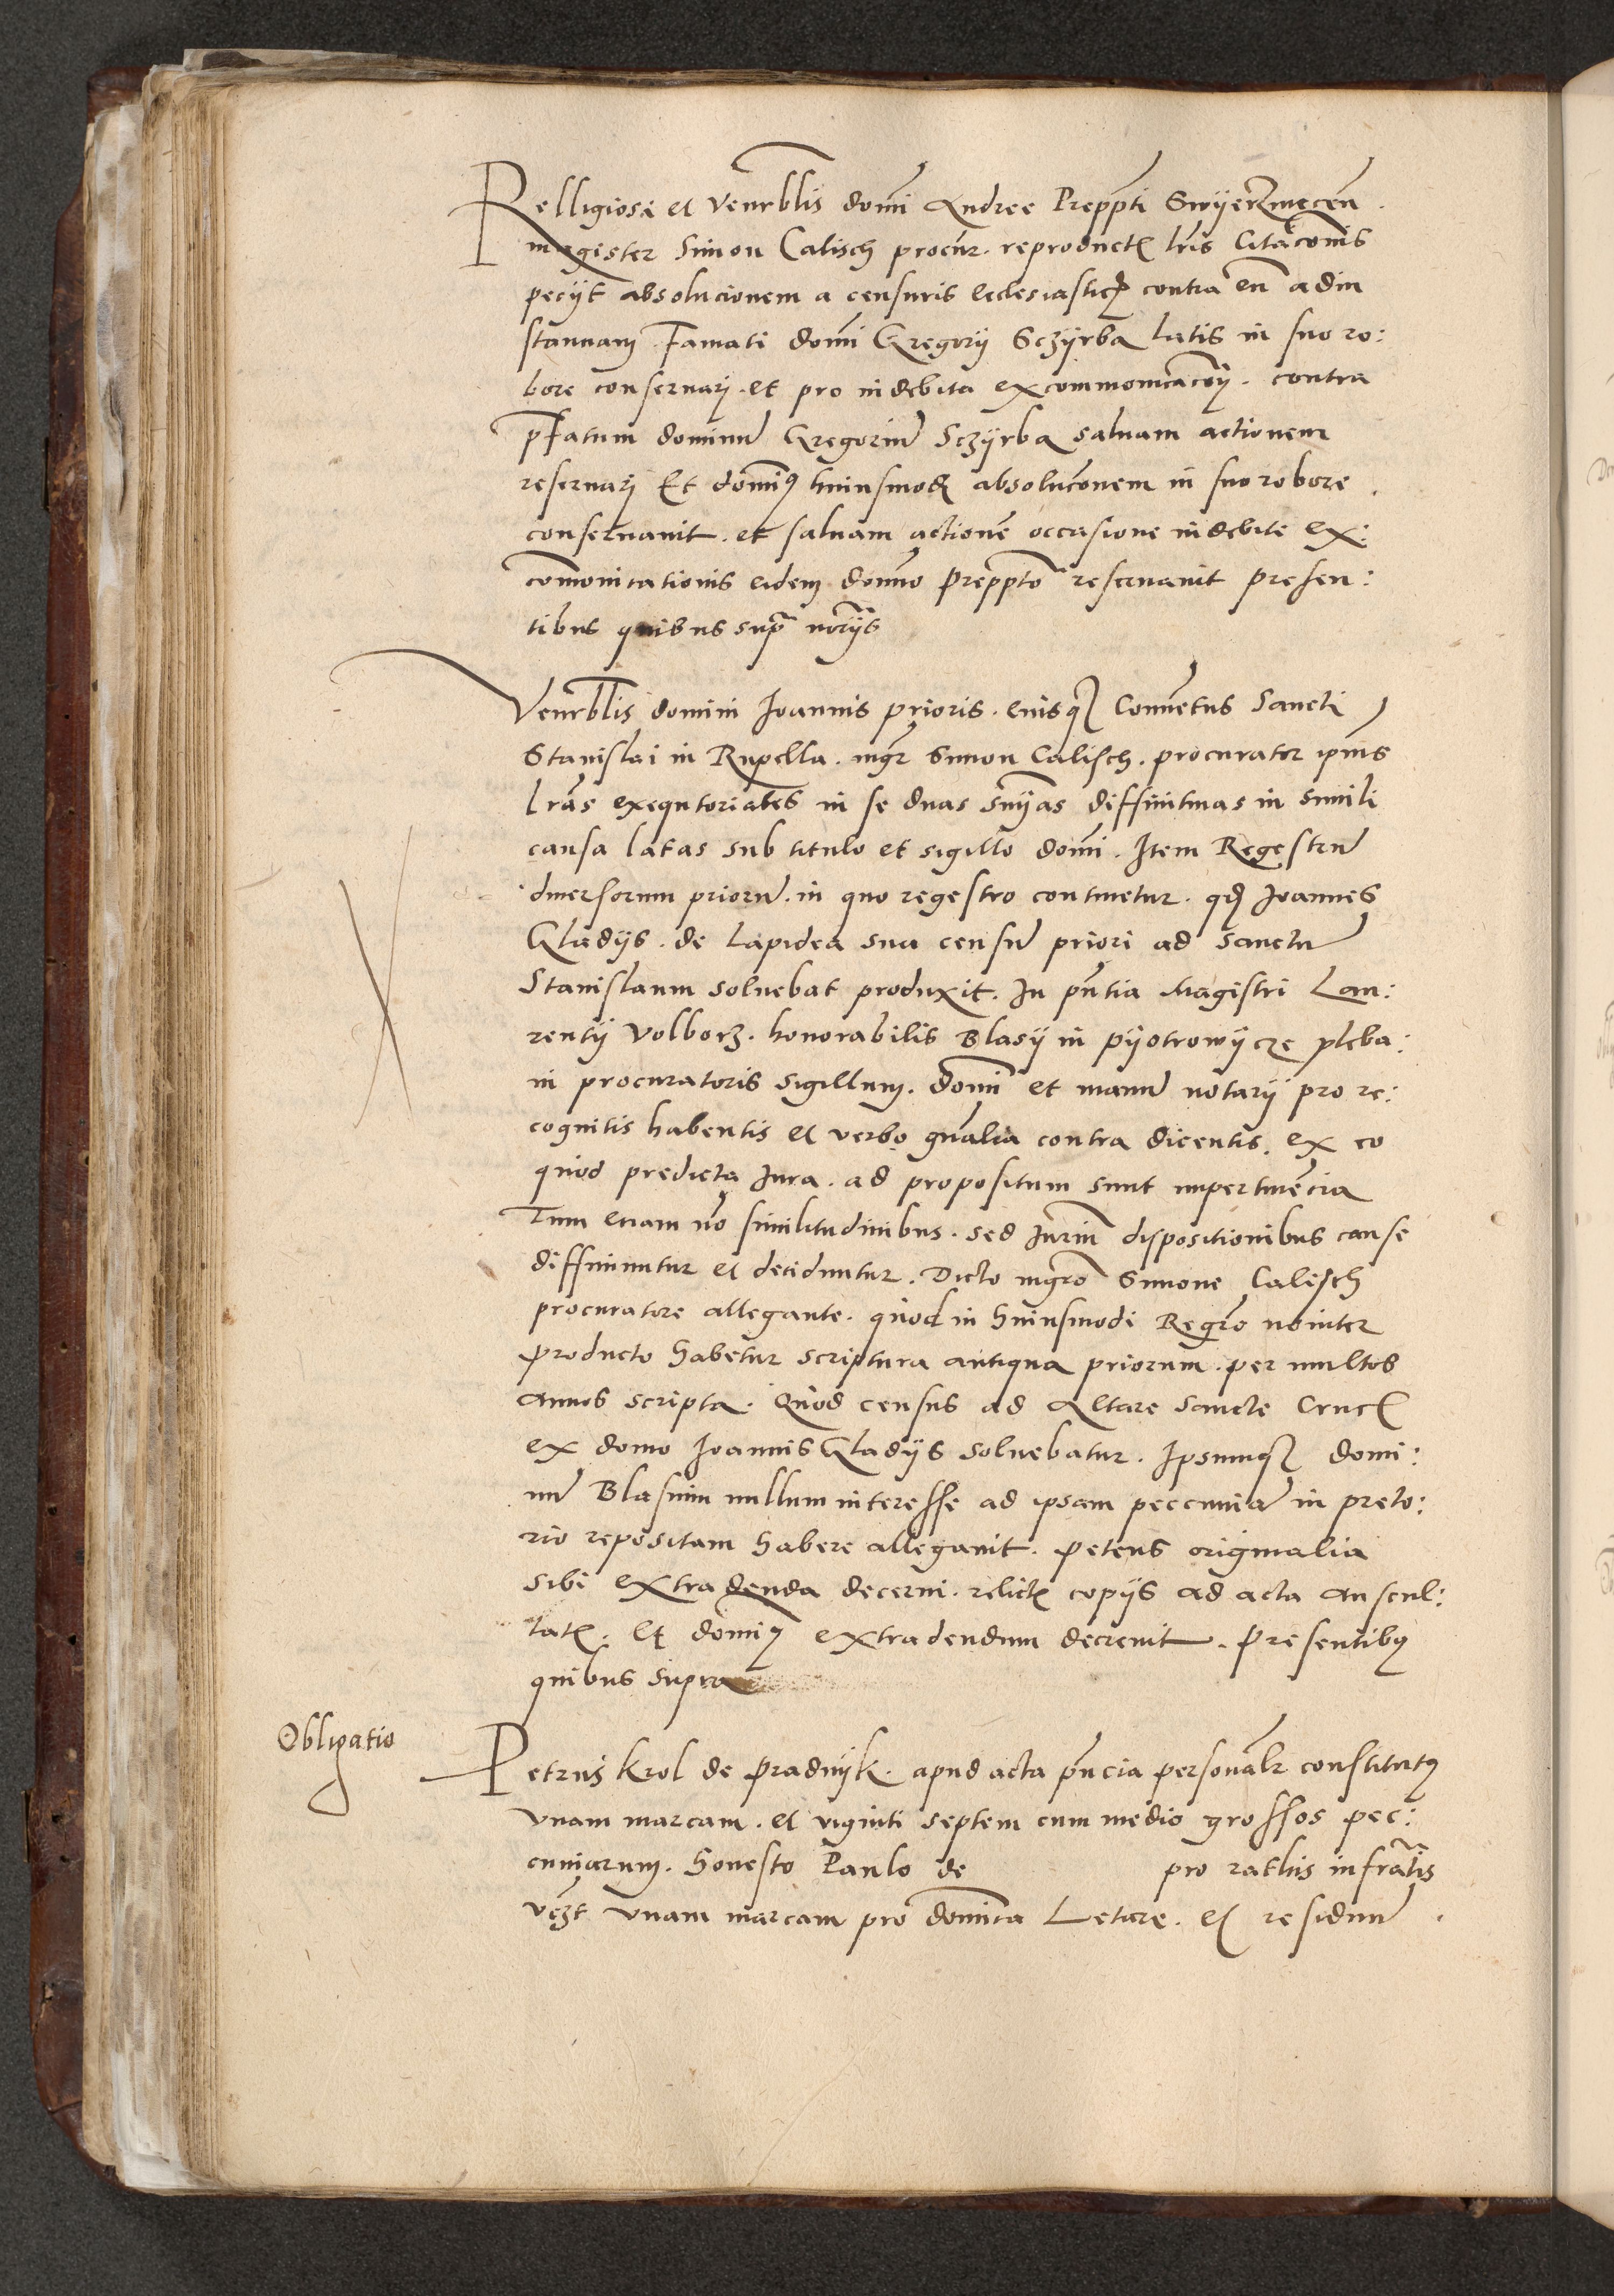 Relligiosi et Venrblis domi Andree Preppti Swyerzmecen
magister Simon Calisch procur. reproductis lris Citacionis
pecijt absolucionem a censuris ecclesiasticis contra eu adin
stanciam Famati domi Gregorij Sczyrba latis in suo ro:
bore conseruarj. et pro indebita excommonicacionj. contra
pfatum dominu Gregoriu Sczyrba saluam actionem
reseruarj Et dominus huiusmodi absolucionem in suo robore
conseruauit. et saluam actione occasione indebite ex:
comonicationis eidem domno Preppto reseruauit presen:
tibus quibus supra norijs
Venrblis domini Joannis prioris. eiusq Conuetus Sancti
Stanislai in Rupella. mgr Simon Calisch. procurator ipius
lras exequtoriales in se duas snias diffinitiuas in simili
causa latas sub titulo et sigillo domi. Item Regestru
diuersorum prioru. in quo regestro continetur. qd Joannes
Gladijs. de lapidea sua censu priori ad Sanctu
Stanislaum soluebat produxit. In pntia Magistri Lau:
rentij Volborz. honorabilis Blasij in Pyotrowycze pleba:
ni procuratoris sigillum. domi et manu notarij pro re:
cognitis habentis et verbo gnalia contra dicentis. ex eo
quod predicta Jura. ad propositum sunt impertinecia
Tum eciam no similitudinibus. sed Jurium dispositionibus cause
diffiniuntur et deciduntur. Dicto mgro Simone Calisch
procuratore allegante. quod in huiusmodi Regro nointer
producto habetur scriptura antiqua priorum. per multos
annos scripta. Quod census ad Altare Sancte Crucis
ex domo Joannis Gladijs soluebatur. Ipsumq domi:
nu Blasium nullum interesse ad ipsam peccunia in preto:
rio repositam habere allegauit. petens originalia
sibi extradenda decerni. relictis copijs ad acta auscul:
tatis. Et dominus extradendum decreuit. Presentibus
quibus supra
Obligatio
Petrus Krol de Pradnyk. apud acta pncia personalr constitutus
vnam marcam. et viginti septem cum medio grossos pec:
cuniarum. honesto Paulo de pro rathis infratis
vczt vnam marcam pro domica Letare. et residuu